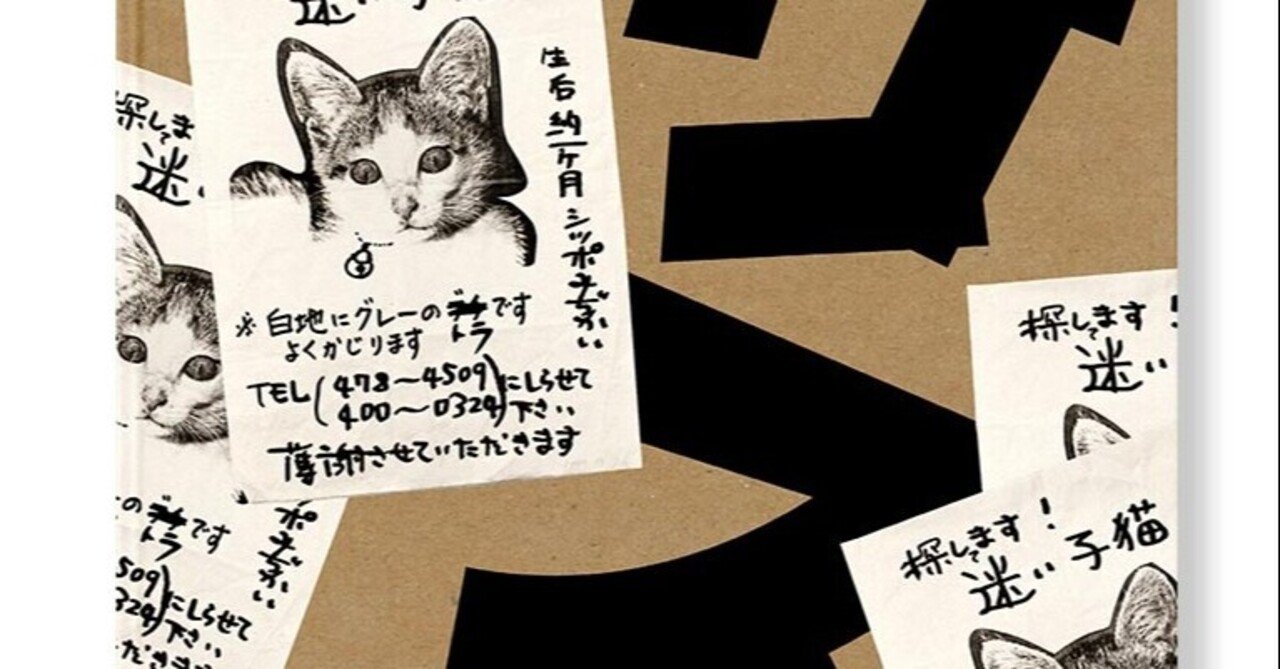 迷
生后約一ケ月シッポまぢかい
※白地にグレーのトラです
よくかじります
TEL(478〜4509
400〜0324)にしらせて
下さい
薄謝させていただきます
探してます
迷い
のトラです
ポ
い
509
324)にしらせて
下さい
ただきます
探してます!
迷い
探してます!
迷い子猫